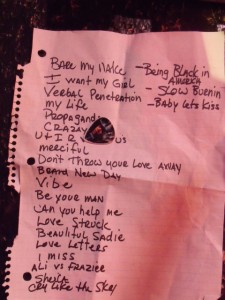 BARE MY NAKE -Being Black in AMERIKA
I want my Girl - Slow Burnin
Verbal Penetration -Baby Lets Kiss
my Life
Propaganda
CRAZAY
U + I R US
merciful
Don't Throw your Love AWAY
Brand New Day
Vibe
Be your man
CAn you help me
Love Struck
Beautiful Sadie
Love Letters
I miss
ALI vs FRAZIER
Sheila
CRY Like the Sky